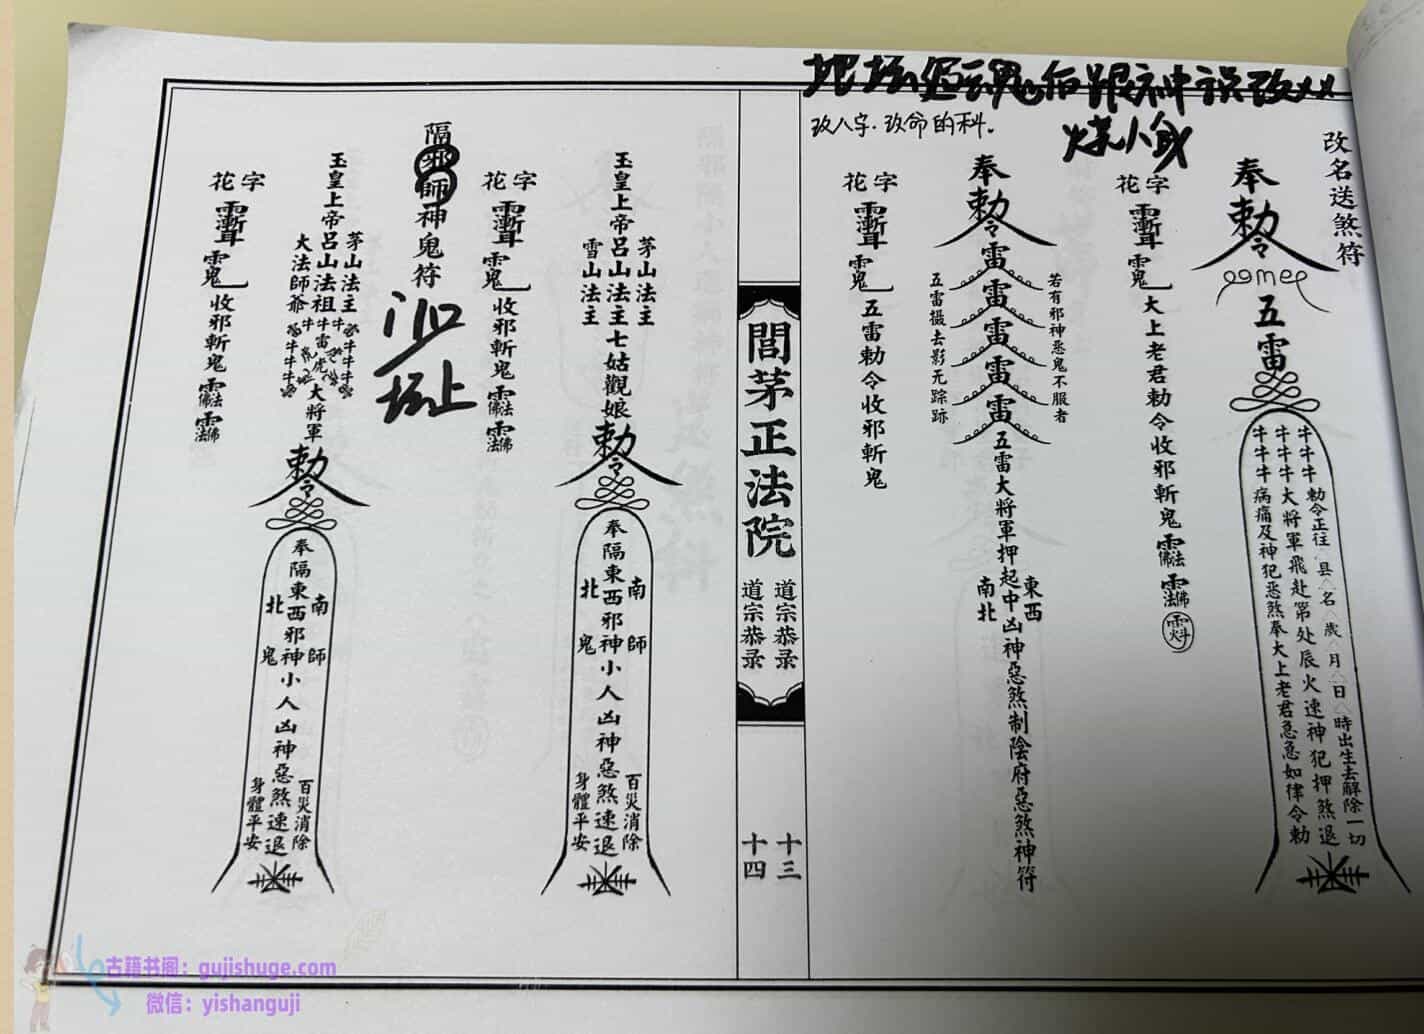 改八字.改命的科。
改名送煞符
奉
勅令
五雷
牛牛牛勅令正往
県△名△歲△月△日△時出生去解除一切
牛牛牛大將軍飛赴第处辰火速神犯押煞退
牛牛牛病痛及神犯惡煞奉大上老君急急如律令勅
花字
大上老君勅令收邪斬鬼
奉
勅令
雷
雷
雷
雷
雷
若有邪神惡鬼不服者
五雷摄去影无踪跡
五雷大將軍押起中凶神惡煞制陰府惡煞神符
東西
南北
花字
五雷勅令收邪斬鬼
閭茅正法院
道宗恭录
道宗恭录
十三
十四
茅山法主
玉皇上帝呂山法主七姑觀娘
雪山法主
勅令
奉隔東西邪神小人凶神惡煞速退
南師
北鬼
百災消除
身體平安
花字
收邪斬鬼
隔邪師神鬼符
茅山法主
玉皇上帝呂山法祖
大法師爺
大將軍
勅令
奉隔東西邪神小人凶神惡煞速退
南師
北鬼
百災消除
身體平安
花字
收邪斬鬼
古籍书阁：gujishuge.com
微信：yishanguji